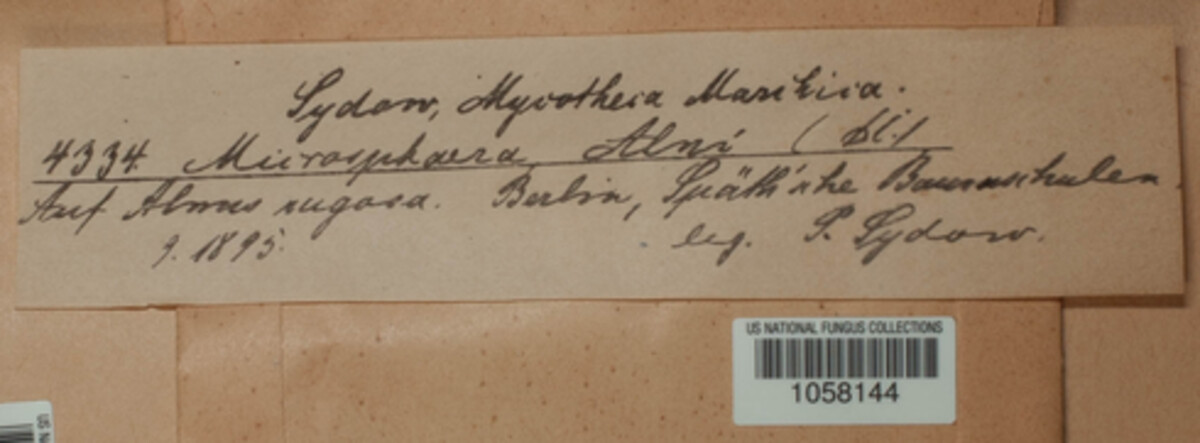 Sydow, Mycotheca Marchica.
4334. Microsphaera Alni (DC.)
Auf Alnus rugosa. Berlin, Späth'sche Baumschulen.
9. 1895. leg. P. Sydow.
US NATIONAL FUNGUS COLLECTIONS
1058144
US N